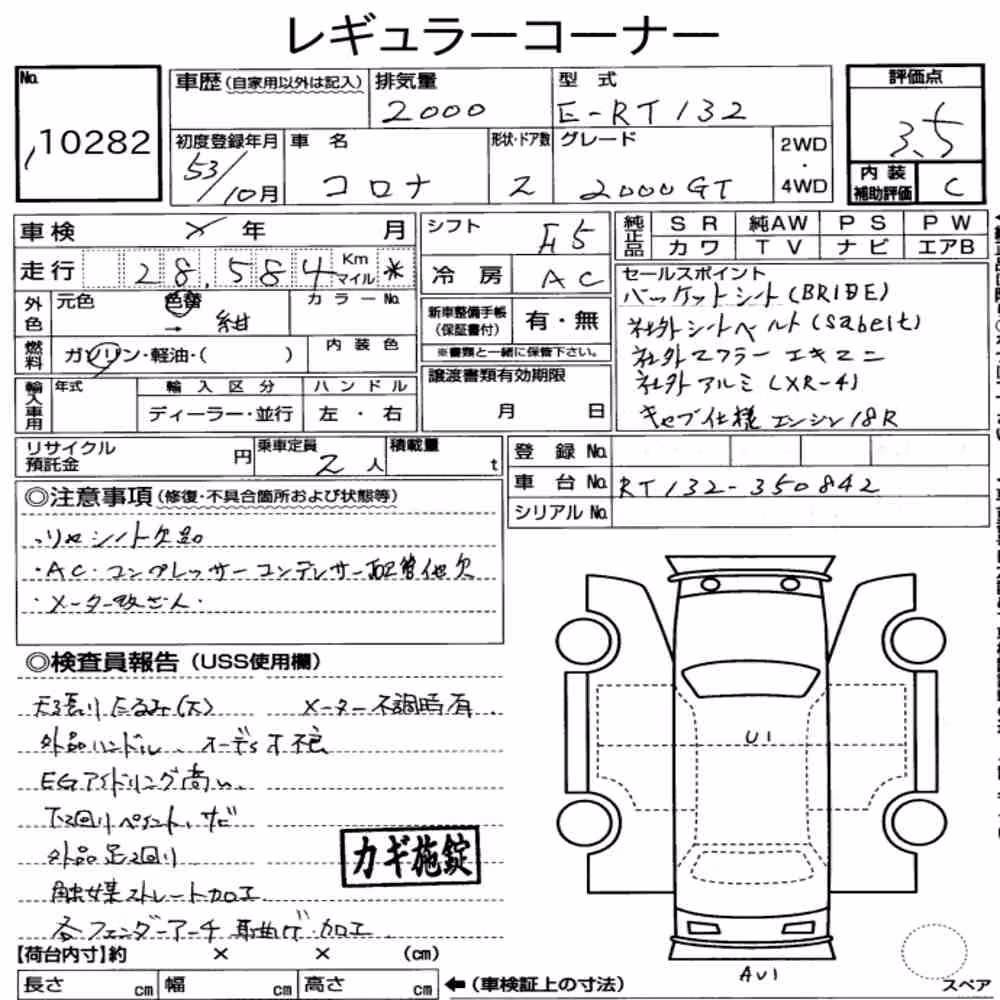 レギュラーコーナー
No. 10282
車歴(自家用以外は記入)
排気量 2000
型式 E-RT132
評価点 3.5
初度登録年月 53/10月
車名 コロナ
形状・ドア数 2
グレード 2000GT
2WD・4WD
内装補助評価 C
車検 × 年 月
走行 28,584 Km マイル *
外色 元色 色替 → 紺 カラーNo.
燃料 ガソリン・軽油・( ) 内装色
輸入車用 年式 輸入区分 ディーラー・並行 ハンドル 左・右
シフト F5
冷房 AC
新車整備手帳(保証書付) 有・無
※書類と一緒に保管下さい。
譲渡書類有効期限 月 日
純正品 SR 純AW PS PW
カワ TV ナビ エアB
セールスポイント
バケットシート(BRIDE)
社外シートベルト(Sabelt)
社外マフラー エキマニ
社外アルミ(XR-4)
キャブ仕様 エンジン18R
リサイクル預託金 円
乗車定員 2人
積載量 t
登録No.
車台No. RT132-350842
シリアルNo.
◎注意事項(修復・不具合箇所および状態等)
・リヤシート欠品
・AC・コンプレッサーコンデンサー配管他欠
・メーター改ざん・
◎検査員報告(USS使用欄)
天張りたるみ(大) メーター不調時有
外品ハンドル、オーディオ不良
EGアイドリング高い
下回りペイント、サビ
外品足回り
触媒ストレート加工
各フェンダーアーチ耳曲げ・加工
カギ施錠
U1
AU1
【荷台内寸】約 × × (cm)
長さ cm 幅 cm 高さ cm ←(車検証上の寸法)
スペア